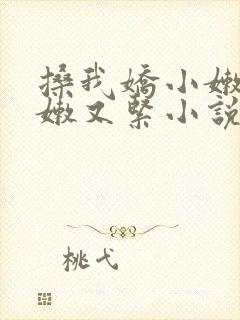 搡我嬌小嫩
嫩又緊小說
桃弋